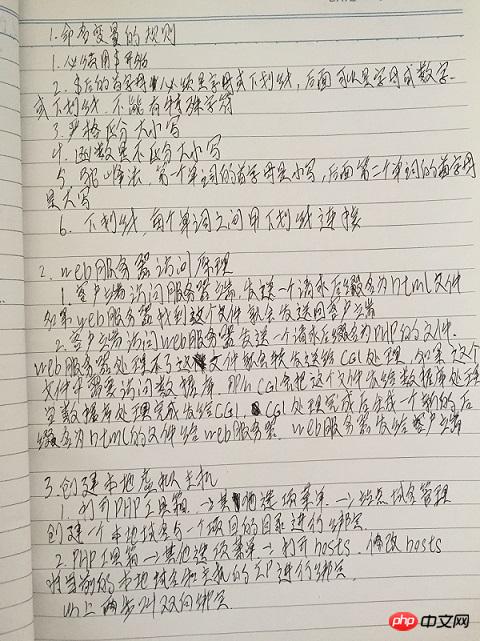 1.命名变量的规则
1.必须用$开始
2.$后的首字母必须是字母或下划线,后面可以是字母或数字
或下划线,不能有特殊字符
3.严格区分大小写
4.函数是不区分大小写
5.驼峰法,第一个单词的首字母是小写,后面第二个单词的首字母
是大写
6.下划线,每个单词之间用下划线连接
2.web服务器访问原理
1.客户端访问服务器端,发送一个请求后缀名为html文件
如果web服务器找到这个文件就会发送回客户端
2.客户端访问web服务器发送一个请求后缀名为PHP的文件.
web服务器处理不了这文件就会转发送给CGI处理,如果这个
文件中需要访问数据库,PHP CGI会把这个文件发给数据库处理
等数据库处理完成发给CGI,CGI处理完成后生成一个新的后
缀名为html的文件给web服务器,web服务器发给客户端
3.创建本地虚拟主机
1.打开PHP工具箱→其他选项菜单→站点域名管理
创建一个本地域名与一个项目的目录进行绑定
2.PHP工具箱→其他选项菜单→打开hosts,修改hosts
将当前的本地域名和主机的IP进行绑定
以上两步叫双向绑定
php中文网